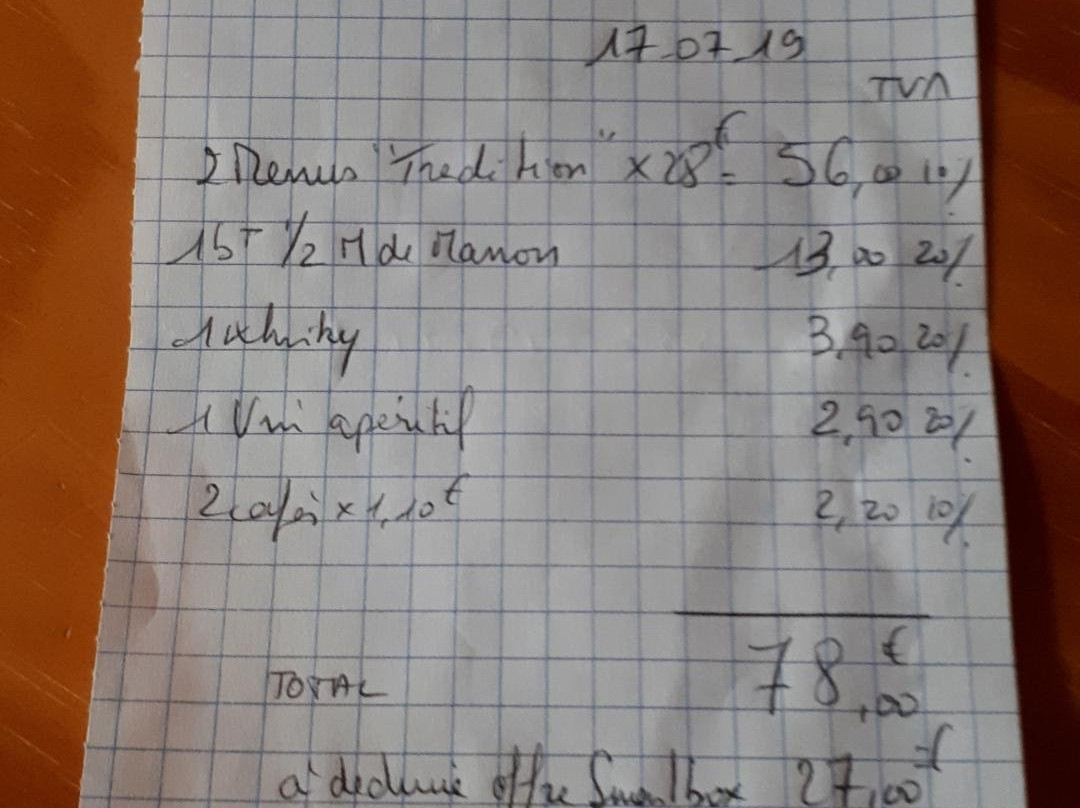 17-07-19
TVA
2 Menus "Tradition" x 28€ = 56,00 10%
1 BT 1/2 M de Manon 13,00 20%
1 Whisky 3,90 20%
1 Vin apéritif 2,90 20%
2 cafés x 1,10€ 2,20 10%
TOTAL 78,00€
à déduire offre Smartbox 27,00€